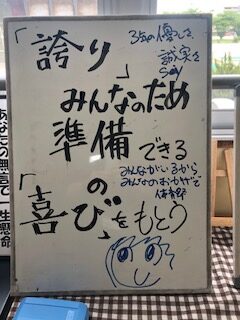 「誇り」
3年の優しさ
誠実さ
みんなのため
準備できる
みんながいるから
みんなのおかげで
「喜びの」をもとう
一生懸命